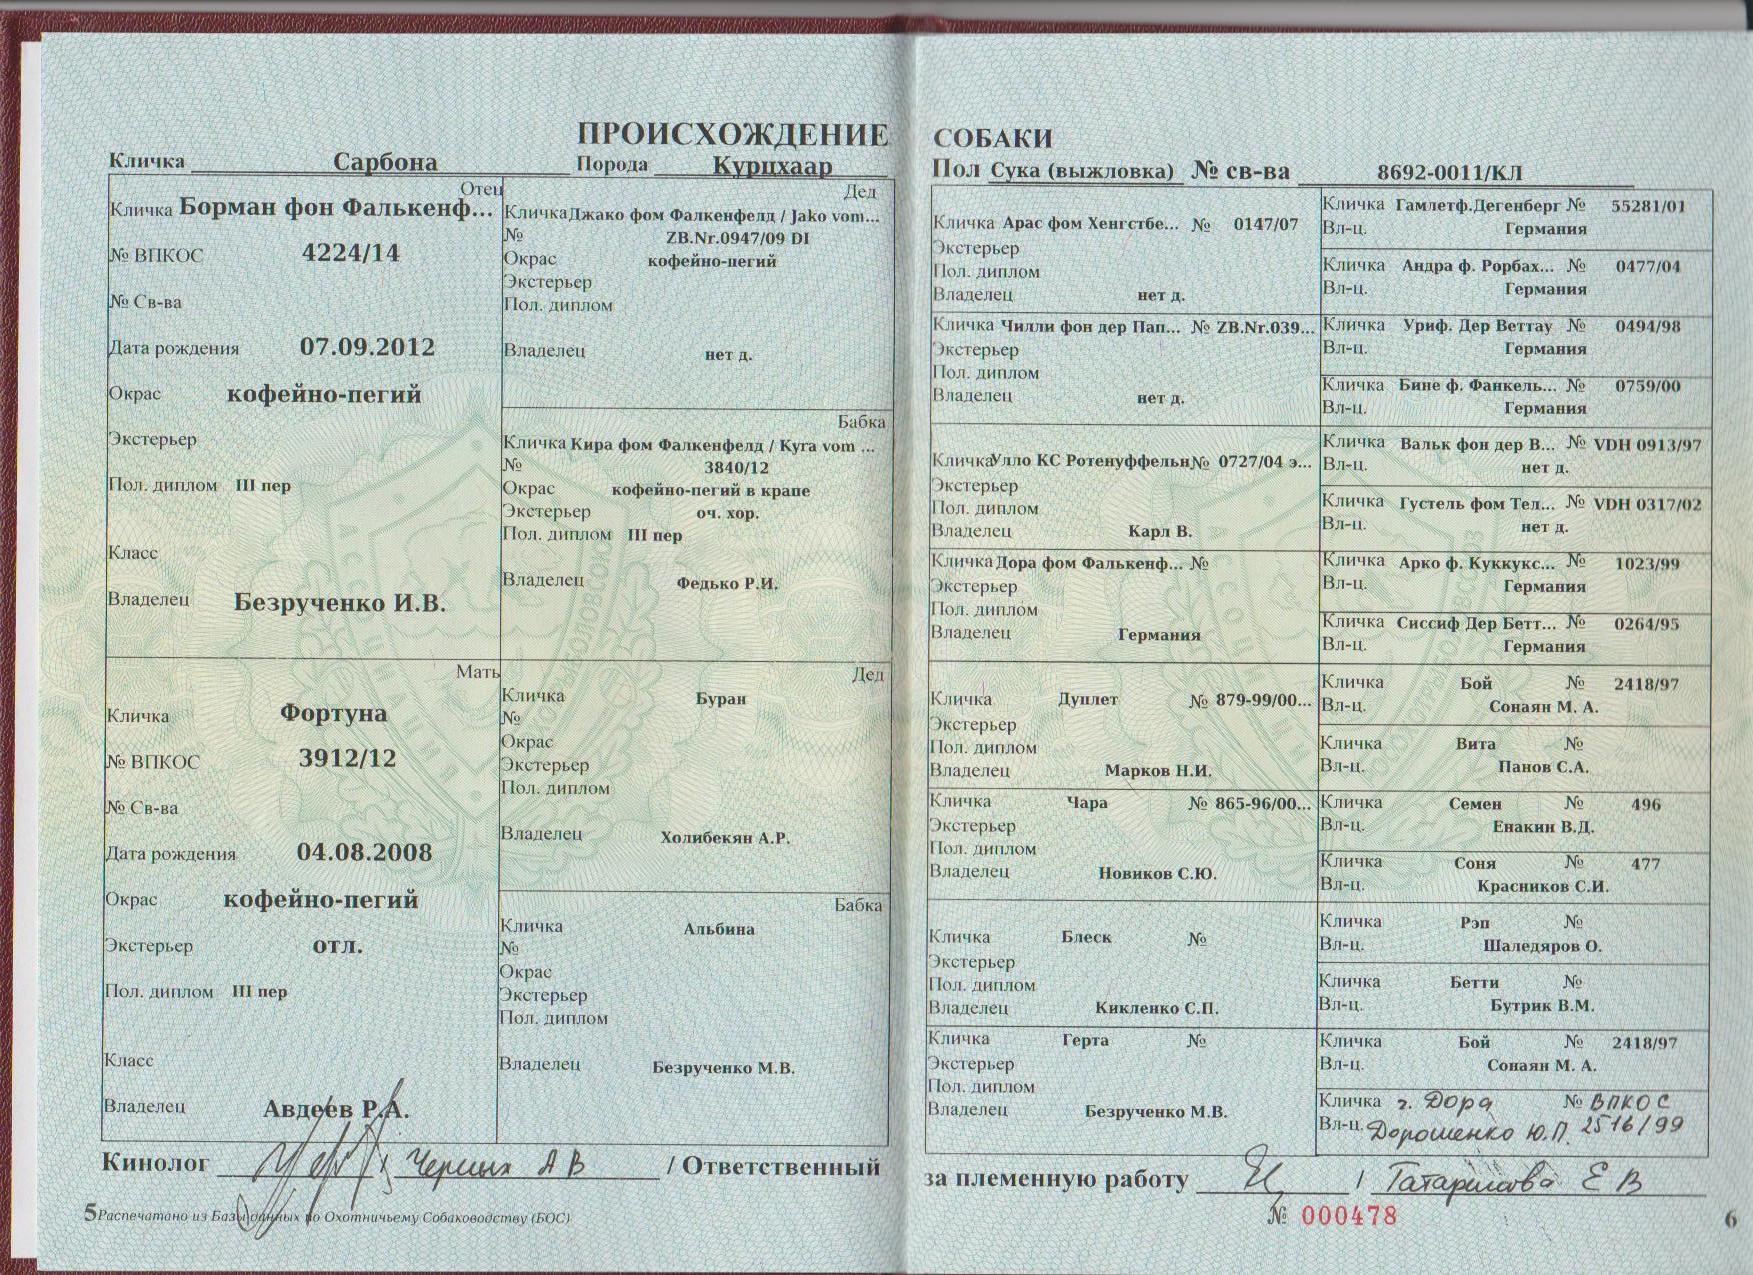 ПРОИСХОЖДЕНИЕ
Кличка Сарбона Порода Курцхаар
Отец
Кличка Борман фон Фалькенф...
№ ВПКОС 4224/14
№ Св-ва
Дата рождения 07.09.2012
Окрас кофейно-пегий
Экстерьер
Пол. диплом III пер
Класс
Владелец Безрученко И.В.
Мать
Кличка Фортуна
№ ВПКОС 3912/12
№ Св-ва
Дата рождения 04.08.2008
Окрас кофейно-пегий
Экстерьер отл.
Пол. диплом III пер
Класс
Владелец Авдеев Р.А.
Дед
Кличка Джако фом Фалкенфелд / Jako vom...
№ ZB.Nr.0947/09 DI
Окрас кофейно-пегий
Экстерьер
Пол. диплом
Владелец нет д.
Бабка
Кличка Кира фом Фалкенфелд / Kyra vom ...
№ 3840/12
Окрас кофейно-пегий в крапе
Экстерьер оч. хор.
Пол. диплом III пер
Владелец Федько Р.И.
Дед
Кличка Буран
№
Окрас
Экстерьер
Пол. диплом
Владелец Холибекян А.Р.
Бабка
Кличка Альбина
№
Окрас
Экстерьер
Пол. диплом
Владелец Безрученко М.В.
Кинолог Черных А В / Ответственный
5 Распечатано из Базы данных по Охотничьему Собаководству (БОС)
СОБАКИ
Пол Сука (выжловка) № св-ва 8692-0011/КЛ
Кличка Арас фом Хенгстбе... № 0147/07
Экстерьер
Пол. диплом
Владелец нет д.
Кличка Чилли фон дер Пап... № ZB.Nr.039...
Экстерьер
Пол. диплом
Владелец нет д.
Кличка Улло КС Ротенуффельн № 0727/04 э...
Экстерьер
Пол. диплом
Владелец Карл В.
Кличка Дора фом Фалькенф... №
Экстерьер
Пол. диплом
Владелец Германия
Кличка Дуплет № 879-99/00...
Экстерьер
Пол. диплом
Владелец Марков Н.И.
Кличка Чара № 865-96/00...
Экстерьер
Пол. диплом
Владелец Новиков С.Ю.
Кличка Блеск №
Экстерьер
Пол. диплом
Владелец Кикленко С.П.
Кличка Герта №
Экстерьер
Пол. диплом
Владелец Безрученко М.В.
Кличка Гамлетф.Дегенберг № 55281/01
Вл-ц. Германия
Кличка Андра ф. Рорбах... № 0477/04
Вл-ц. Германия
Кличка Уриф. Дер Веттау № 0494/98
Вл-ц. Германия
Кличка Бине ф. Фанкель... № 0759/00
Вл-ц. Германия
Кличка Вальк фон дер В... № VDH 0913/97
Вл-ц. нет д.
Кличка Густель фом Тел... № VDH 0317/02
Вл-ц. нет д.
Кличка Арко ф. Куккукс... № 1023/99
Вл-ц. Германия
Кличка Сиссиф Дер Бетт... № 0264/95
Вл-ц. Германия
Кличка Бой № 2418/97
Вл-ц. Сонаян М. А.
Кличка Вита №
Вл-ц. Панов С.А.
Кличка Семен № 496
Вл-ц. Енакин В.Д.
Кличка Соня № 477
Вл-ц. Красников С.И.
Кличка Рэп №
Вл-ц. Шаледяров О.
Кличка Бетти №
Вл-ц. Бутрик В.М.
Кличка Бой № 2418/97
Вл-ц. Сонаян М. А.
Кличка г. Дора № ВПКОС
Вл-ц. Дорошенко Ю.П. 2516/99
за племенную работу / Е В
№ 000478
6